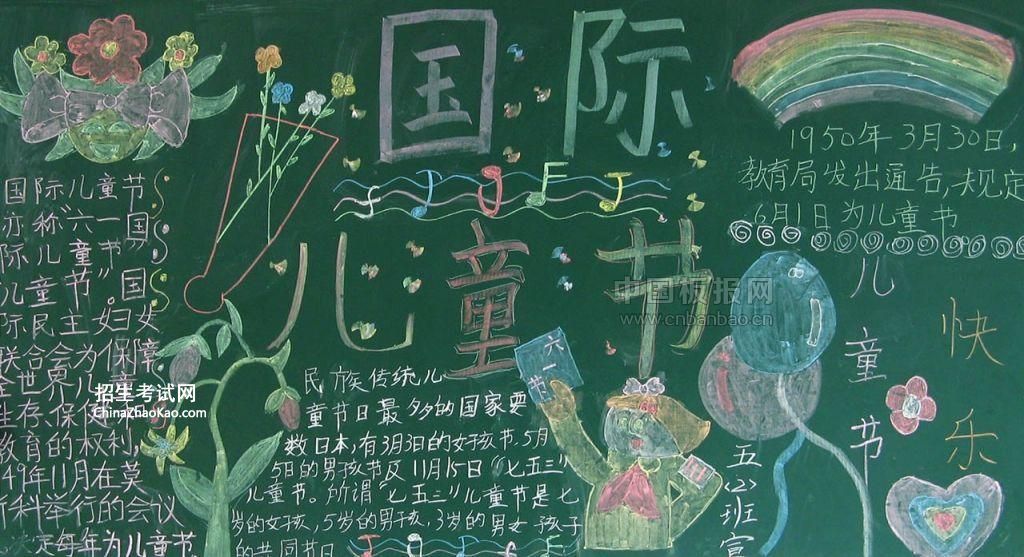 国际
儿童节
国际儿童节
亦称"六一国
际儿童节
儿童节"。国
际民主妇女
联合会为保障
全世界儿童
生存、保健和
教育的权利,
49年11月在莫
斯科举行的会议
决定每年为儿童节
招生考试网
ChinaZhaoKao.com
民族传统儿
童节日最多的国家要
数日本,有3月3日的女孩节.5月
5日的男孩节及11月15日"七五三"
儿童节。所谓"七五三"儿童节是七
岁的女孩,5岁的男孩,3岁的男女孩子
的共同节日
六一
节
中国板报网
www.cnbanbao.cn
1950年3月30日,
教育局发出通告,规定
6月1日为儿童节
儿童节
快乐
五<2>班宣